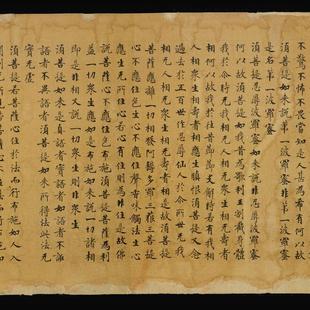 不驚不怖不畏當知是人甚為希有何以故
須菩提如來說第一波羅蜜非第一波羅蜜
是名第一波羅蜜
須菩提忍辱波羅蜜如來說非忍辱波羅蜜
何以故須菩提如我昔為歌利王割截身體
我於尒時无我相无人相无衆生相无壽者
相何以故我於往昔節節支解時若有我相
人相衆生相壽者相應生瞋恨須菩提又念
過去於五百世作忍辱仙人於尒所世无我
相无人相无衆生相无壽者相是故須菩提
菩薩應離一切相發阿耨多羅三藐三菩提
心不應住色生心不應住聲香味觸法生心
應生无所住心若心有住則為非住是故佛
說菩薩心不應住色布施須菩提菩薩為利
益一切衆生應如是布施如來說一切諸相
即是非相又說一切衆生則非衆生
須菩提如來是真語者實語者如語者不誑
語者不異語者須菩提如來所得法此法无
實无虛
須菩提若菩薩心住於法而行布施如人入